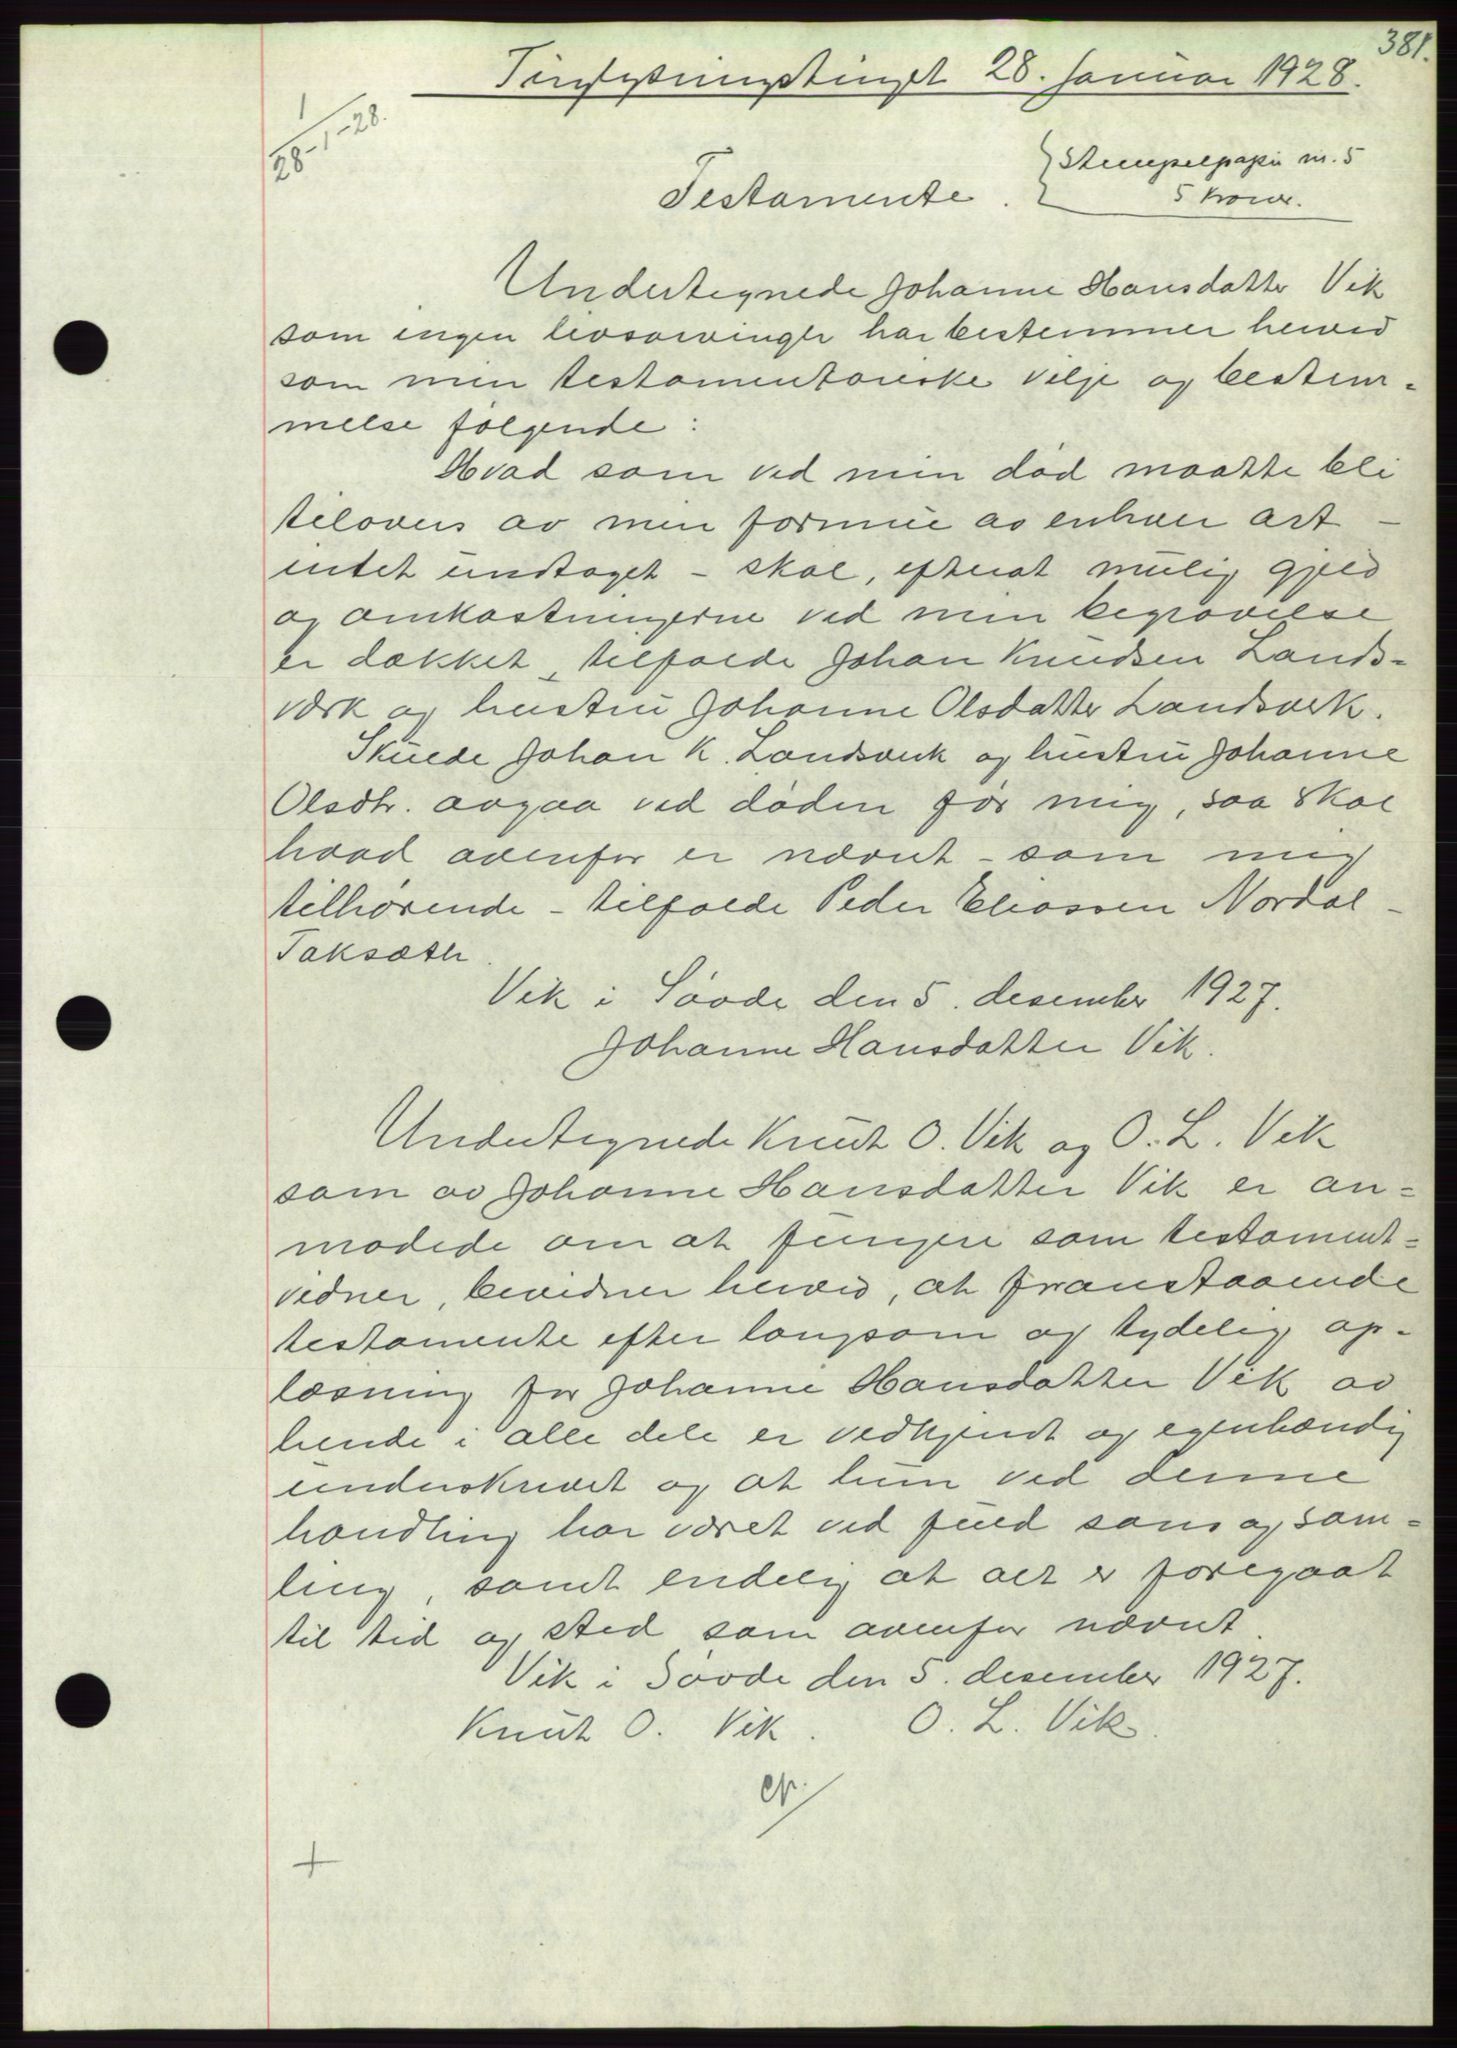 381.
Tinglysningstinget 28. Januar 1928.
1
28-1-28.
Stempelpapir nr. 5
5 kroner.
Testamente.
Undertegnede Johanne Hansdatter Vik
som ingen livsarvinger har bestemmer herved
som min testamentariske vilje og bestem-
melse følgende:
Hvad som ved min død maatte bli
tilovers av min formue av enhver art -
intet undtaget - skal, efterat mulig gjeld
og omkostningerne ved min begravelse
er dækket, tilfalde Johan Knudsen Lands-
værk og hustru Johanne Olsdatter Landsverk.
Skulde Johan K. Landsverk og hustru Johanne
Olsdtr. avgaa ved døden før mig, saa skal
hvad ovenfor er nævnt - som mig
tilhørende - tilfalde Peder Eliassen Nordal-
Taksæth.
Vik i Søvde den 5. desember 1927.
Johanne Hansdatter Vik.
Undertegnede Knut O. Vik og O. L. Vik
som av Johanne Hansdatter Vik er an-
modede om at fungere som testament-
vidner, bevidner herved, at franstaaende
testamente efter langsom og tydelig op-
læsning for Johanne Hansdatter Vik av
hende i alle dele er vedkjendt og egenhændig
underskrevet og at hun ved denne
handling har været ved fuld sans og sam-
ling, samt endelig at alt er foregaat
til tid og sted som ovenfor nævnt.
Vik i Søvde den 5. desember 1927.
Knut O. Vik. O. L. Vik.